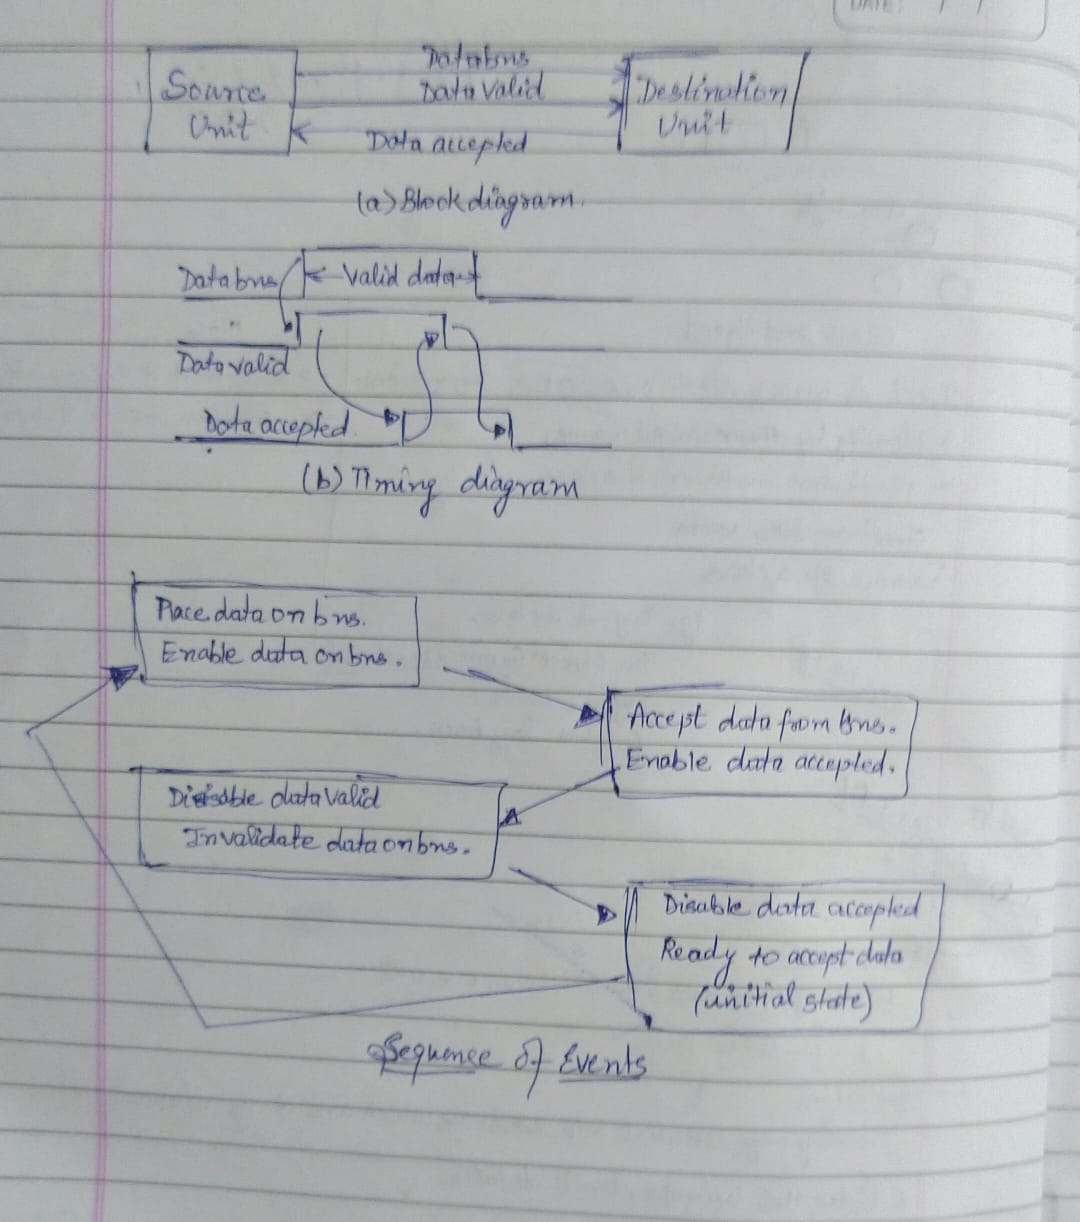 DATE: / /
Databus
Source
Unit
Data Valid
Destination
Unit
Data accepted
(a) Block diagram.
Databus
Valid data
Data valid
Data accepted.
(b) Timing diagram
Place data on bus.
Enable data on bus.
Accept data from bus.
Enable data accepted.
Disable data valid
Invalidate data on bus.
Disable data accepted
Ready to accept data
(initial state)
Sequence of Events